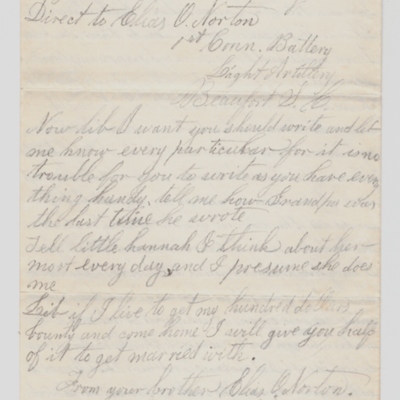 Direct to Elias O. Norton
1st Conn. Battery
Light Artillery
Beaufort S. C.
Now Lib I want you should write and let
me know every particular for it is no
trouble for you to write as you have every
thing handy. tell me how Grandpa was
the last time he wrote
Tell little hannah I think about her
most every day, and I presume she does
me
Lib if I live to get my hundred dollars
bounty and come home I will give you half
of it to get married with.
From your brother Elias O. Norton.